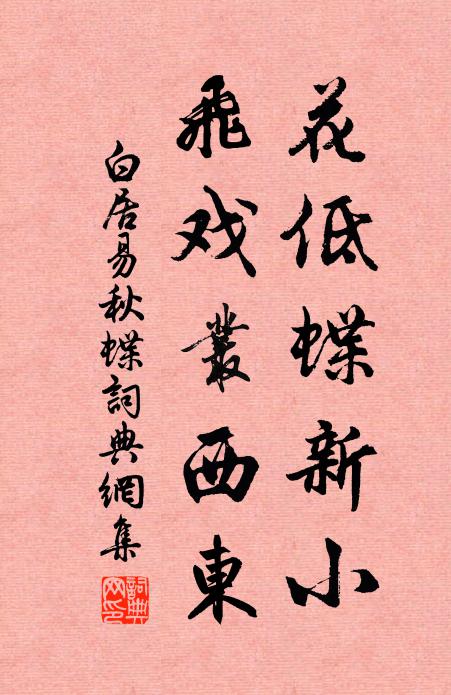 花低蝶新小
飛戏叢西東
白居易秋蝶詞典網集
詞典網印